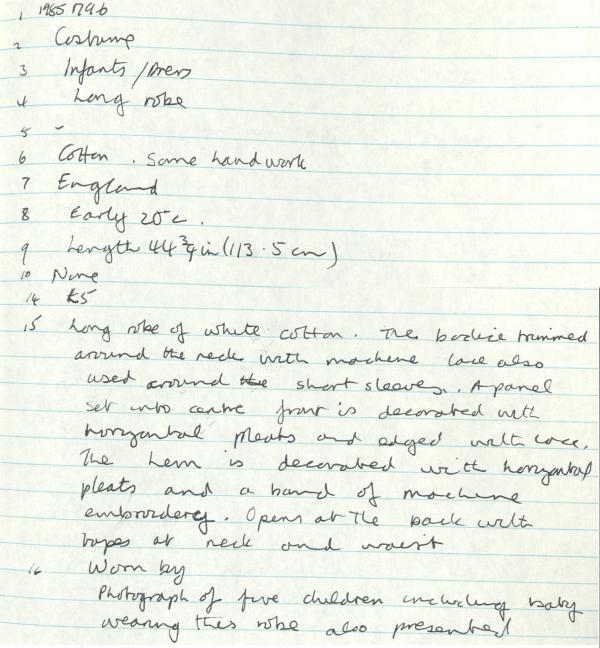 1 1985 179b
2 Costume
3 Infants / Dress
4 Long robe
5 -
6 Cotton . Some handwork
7 England
8 Early 20c.
9 Length 44 3/4 in (113.5 cm)
10 None
14 £5
15 Long robe of white cotton. The bodice trimmed
around the neck with machine lace also
used around the short sleeves. A panel
set into centre front is decorated with
horizontal pleats and edged with lace.
The hem is decorated with horizontal
pleats and a band of machine
embroidery. Opens at the back with
tapes at neck and waist
16 Worn by
Photograph of five children including baby
wearing this robe also presented